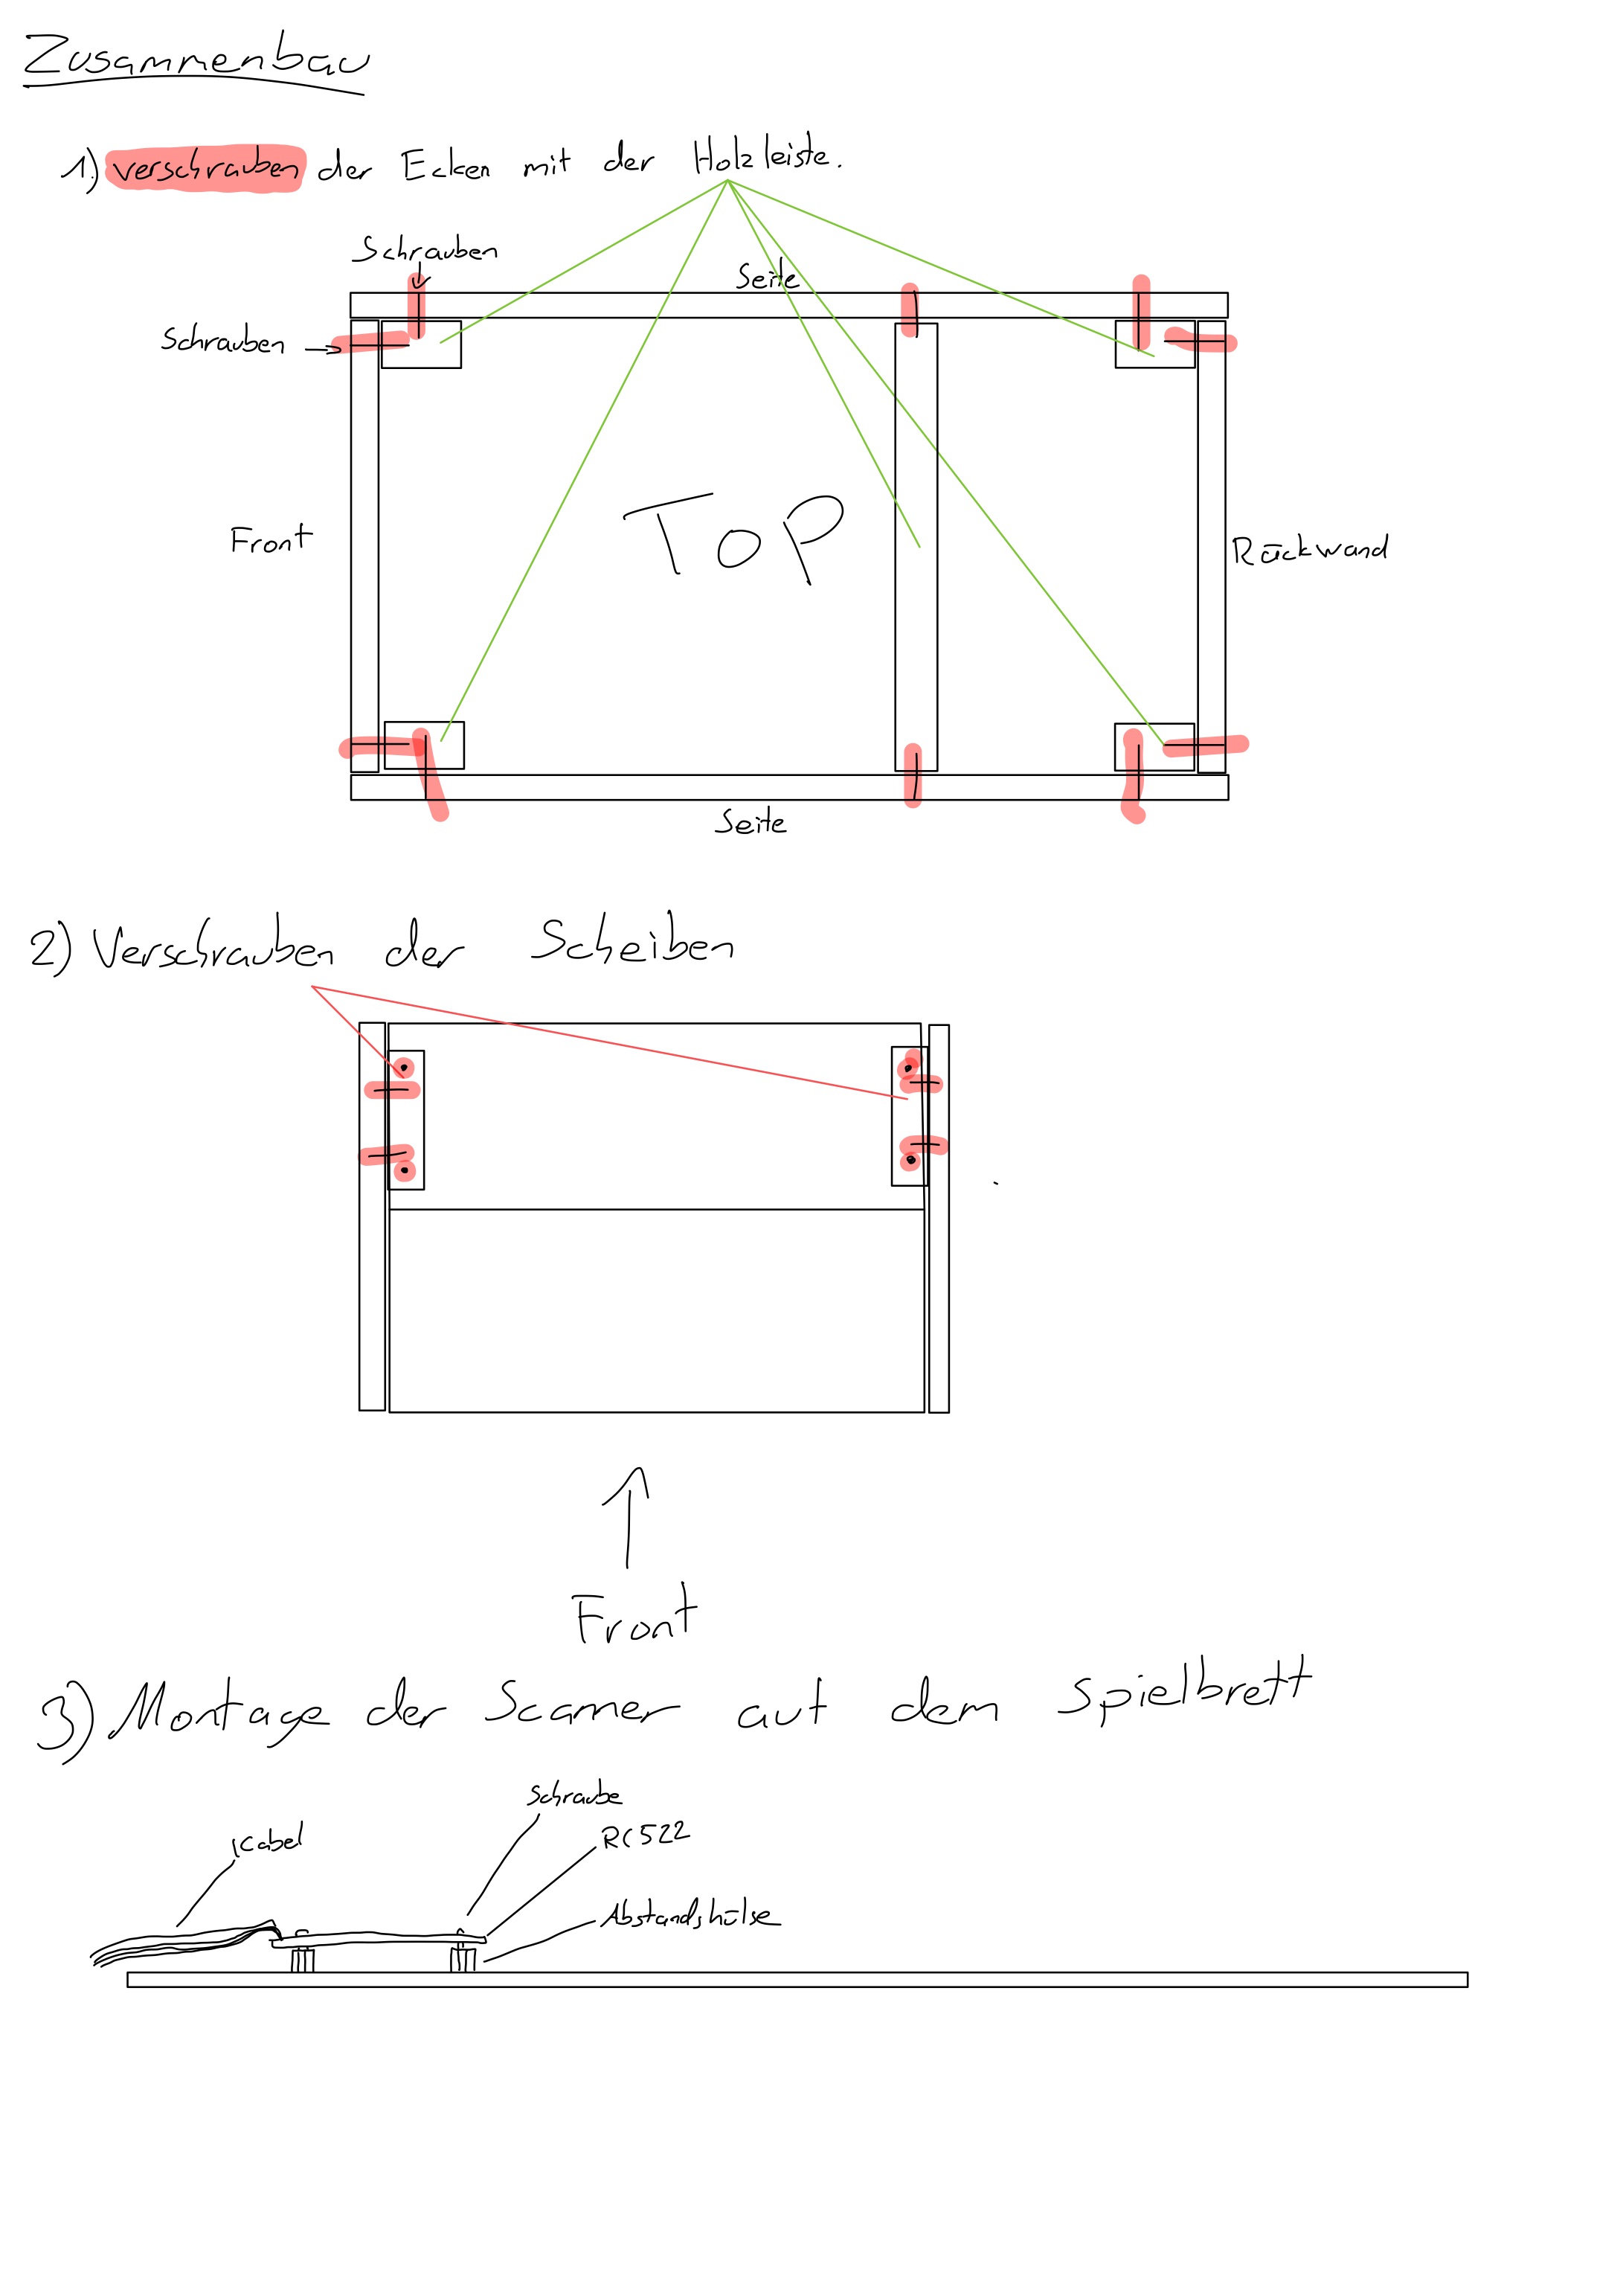 Zusammenbau
1.) verschrauben der Ecken mit der Holzleiste.
Schrauben
Seite
Schrauben
Front
TOP
Rückwand
Seite
2) Verschrauben der Scheiben
Front
3) Montage der Scanner auf dem Spielbrett
Schraube
Kabel
RC522
Abstandshülse